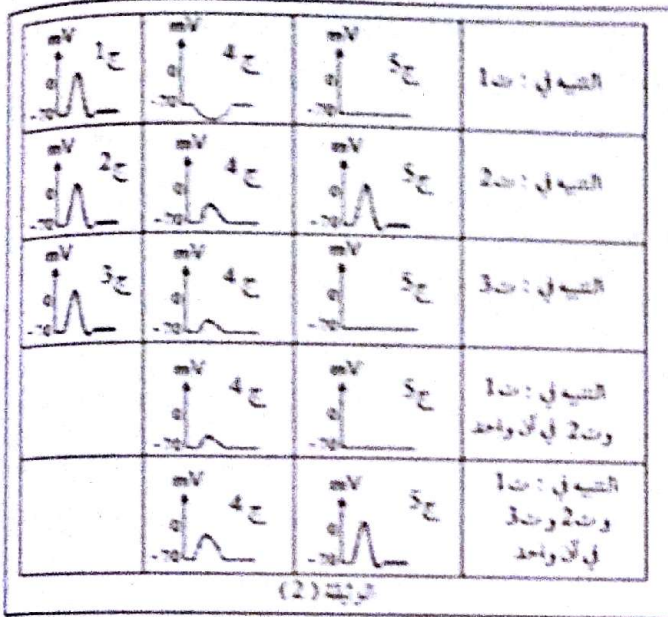 mV
0
-70
ج1
mV
0
-70
ج4
mV
0
-70
ج5
التنبيه في : ت1
mV
0
-70
ج2
mV
0
-70
ج4
mV
0
-70
ج5
التنبيه في : ت2
mV
0
-70
ج3
mV
0
-70
ج4
mV
0
-70
ج5
التنبيه في : ت3
mV
0
-70
ج4
mV
0
-70
ج5
التنبيه في : ت1
وت2 في آن واحد
mV
0
-70
ج4
mV
0
-70
ج5
التنبيه في : ت1
وت2 وت3
في آن واحد
الوثيقة (2)